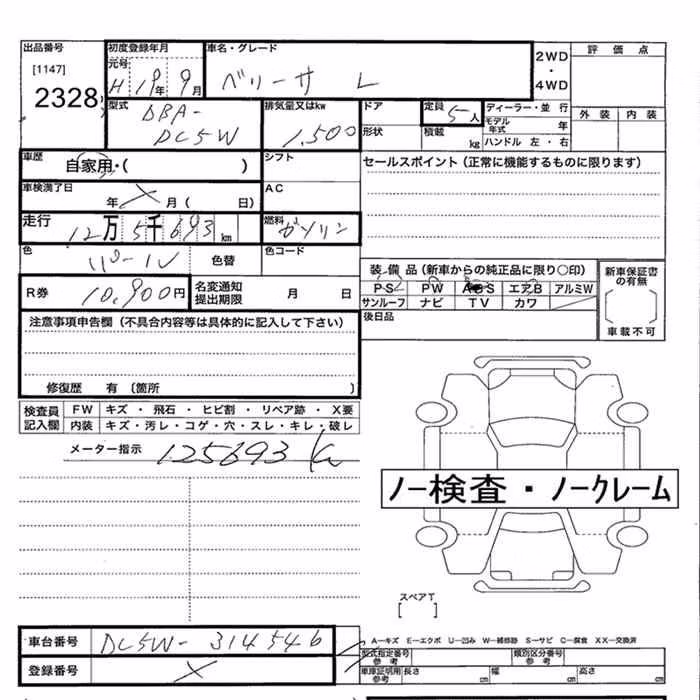 出品番号
[1147]
2328
初度登録年月
元号
H 19年 9月
車名・グレード
ベリーサ L
2WD
・
4WD
評価点
外装 内装
型式
DBA-
DC5W
排気量又はkw
1,500
ドア
形状
定員
5人
積載
kg
ディーラー・並行
モデル年式 年
ハンドル 左・右
車歴
自家用・( )
シフト
セールスポイント(正常に機能するものに限ります)
車検満了日
年 X 月( 日)
AC
走行
12万5千693km
燃料
ガソリン
色
パール
色替
色コード
R券
10,900円
名変通知
提出期限
月 日
装備品(新車からの純正品に限り○印)
PS PW ABS エアB アルミW
サンルーフ ナビ TV カワ
新車保証書
の有無
車載不可
後日品
注意事項申告欄(不具合内容等は具体的に記入して下さい)
修復歴 有〔箇所 〕
検査員
記入欄
FW キズ・飛石・ヒビ割・リペア跡・X要
内装 キズ・汚レ・コゲ・穴・スレ・キレ・破レ
メーター指示 125693
ノー検査・ノークレーム
スペアT
[ ]
車台番号 DC5W-314546
登録番号 X
A―キズ E―エクボ U―凹み W―補修跡 S―サビ C―腐食 XX―交換済
型式指定番号
参考
類別区分番号
参考
車庫証明用
参考
長さ cm 幅 cm 高さ cm